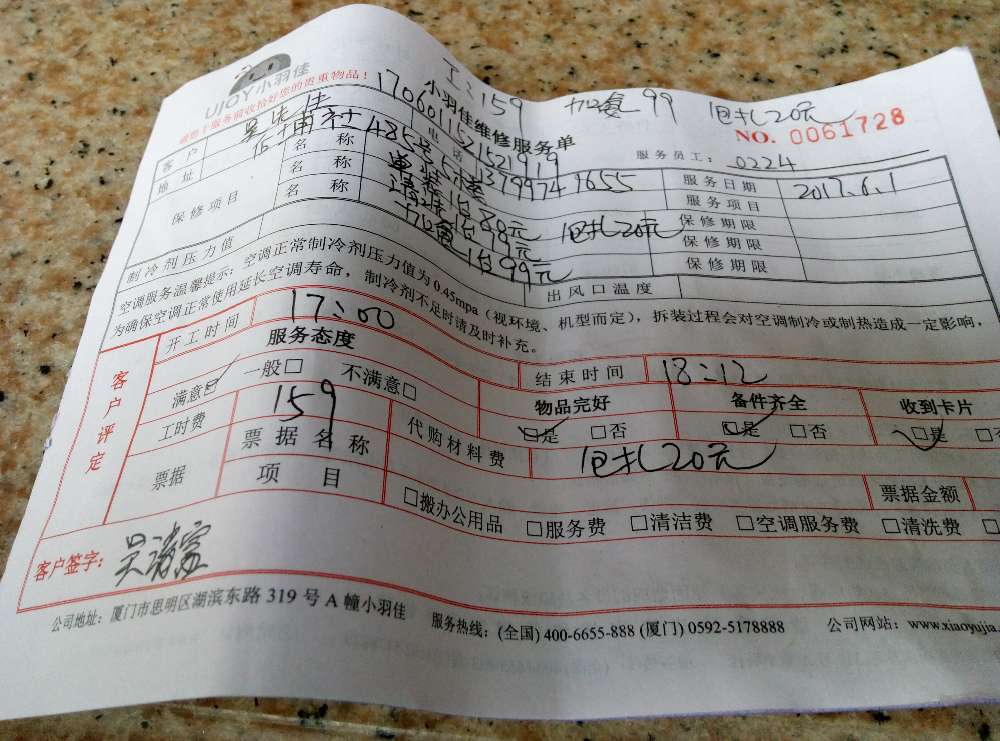 工:159 加氨99 包扎20元
UJOY小羽佳
小羽佳维修服务单
NO. 0061728
请您于服务前收拾好您的贵重物品!
1706011521521919
服务员工: 0224
客户 吴
电话 13799749655
服务日期 2017.6.1
地址 后埔村485号
保修项目
名称
服务项目
名称 包扎20元
保修期限
名称 加氨一台99元
保修期限
保修期限
制冷剂压力值
出风口温度
空调服务温馨提示: 空调正常制冷剂压力值为0.45mpa(视环境、机型而定), 拆装过程会对空调制冷或制热造成一定影响,
为确保空调正常使用延长空调寿命, 制冷剂不足时请及时补充。
客户评定
开工时间 17:00
结束时间 18:12
服务态度
物品完好
备件齐全
收到卡片
满意☑ 一般□ 不满意□
☑是 □否
☑是 □否
☑是 □否
工时费 159
代购材料费 包扎20元
票据
票据名称
票据金额
项目
□搬办公用品 □服务费 □清洁费 □空调服务费 □清洗费 □
客户签字: 吴清富
公司地址: 厦门市思明区湖滨东路319号A幢小羽佳 服务热线: (全国) 400-6655-888 (厦门) 0592-5178888 公司网站: www.xiaoyujia.